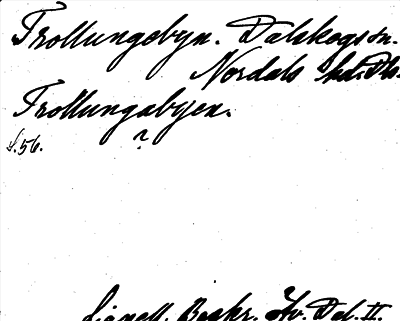 Trollungebyn. Dalskogs sn.
Nordals hd. Dls.
Trollungabyen.
s. 56. ?
Lignell, Beskr. öv. Dal. II.